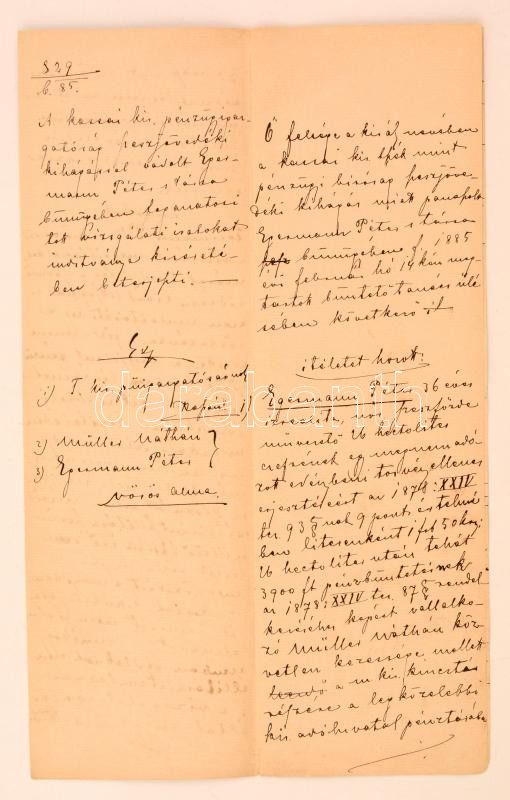 829
b. 85.
A kassai kir. pénzügyigaz-
gatóság jövedéki
kihágással vádolt Eger-
mann Péter s társa
bűnügyében foganatosi
tott vizsgálati iratokat
inditványa kiséreté-
ben beterjeszti.
1) T. kir. pü igazgatóságnak
Kassán
2) Müller Náthán
3) Egermann Péter
Vörös alma
Ő felsége a király nevében
a kassai kir. tszék mint
pénzügyi biróság jöve-
déki kihágás miatt panaszolt
Egermann Péter s társa
bűnügyében f. 1885
évi február hó 14kén meg-
tartott büntető tanács ülé
sében következő
itéletet hozott:
1) Egermann Péter 36 éves
nős szeszfőzde
művezető 26 hectoliter
cefrének egy meg nem adó-
zott edénybeni törvényellenes
erjesztéseért az 1878: XXIV
tcz. 93 § nak 9 pontja értelmé
ben literenként 1 frt 50 kr
26 hectoliter után tehát
3900 ft pénzbüntetésnek
az 1878: XXIV tcz. 87 § rendel
kezéséhez képest vállalko-
zó Müller Náthán köz-
vetlen kezessége mellett
a m kir. kincstár
részére a legközelebbi
kir. adóhivatal pénztárába
darabanth